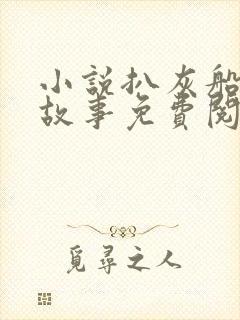 小說扒灰船
故事免費閱
覓尋之人